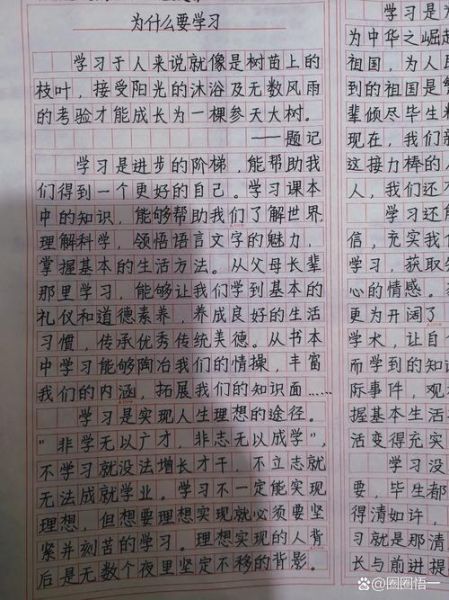 为什么要学习
学习于人来说就像是树苗上的
枝叶，接受阳光的沐浴及无数风雨
的考验才能成长为一棵参天大树。
——题记
学习是进步的阶梯，能帮助我
们得到一个更好的自己。学习课本
中的知识，能够帮助我们了解世界
理解科学，领悟语言文字的魅力，
掌握基本的生活方法。从父母长辈
那里学习，能够让我们学到基本的
礼仪和道德素养，养成良好的生活
习惯，传承优秀传统美德。从书本
中学习能够陶冶我们的情操，丰富
我们的内涵，拓展我们的知识面……
学习是实现人生理想的途径。
“非学无以广才，非志无以成学”，
不学习就没法增长才干，不立志就
无法成就学业。学习不一定能实现
理想，但想要理想实现就必须要坚
紧并刻苦的学习。理想实现的人背
后是无数个夜里坚定不移的背影。
学习是
为中华之崛起
祖国，为人民
到的祖国是
辈倾尽毕生
现在，我们
这接力棒的人
人，我们还
学习还
信，充实我们
学习，获取
心的情感。
更为开阔了
学术，让自
而学到的知识
际事件，观
握基本生活
活变得充实
学习没
要，毕生都
得清如许，
习就是那清
长与前进提
百家号@圈圈悟一